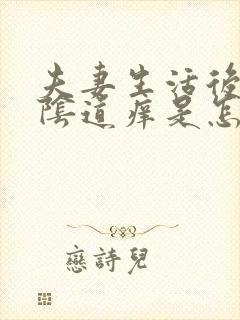 夫妻生活後
陰道痒是怎
戀詩兒